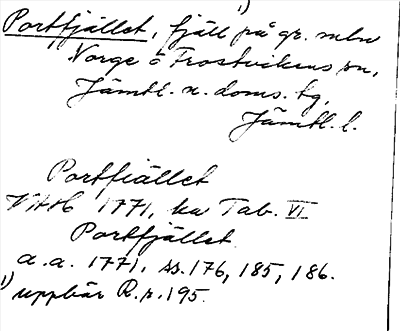 Portfjället, fjäll på gr. mln 1)
Norge o Frostvikens sn,
Jämtl. n. doms. tg,
Jämtl. l.
Portfiället
VAH 1771, ka Tab. VI
Portfjället
a.a. 1771, ss. 176, 185, 186.
1) uppbär R.r. 195.